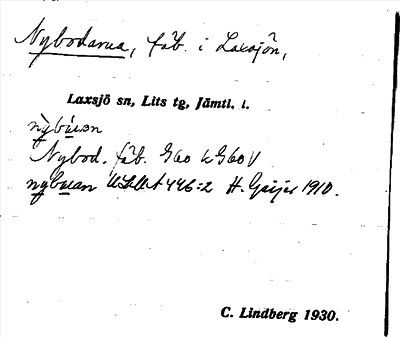 Nybodarna, fäb. i Laxsjön,
Laxsjö sn, Lits tg, Jämtl. l.
nybuan
Nybod. fäb. G60 k G60 V
nybuan ULMA 446:2 H. Geijer 1910.
C. Lindberg 1930.